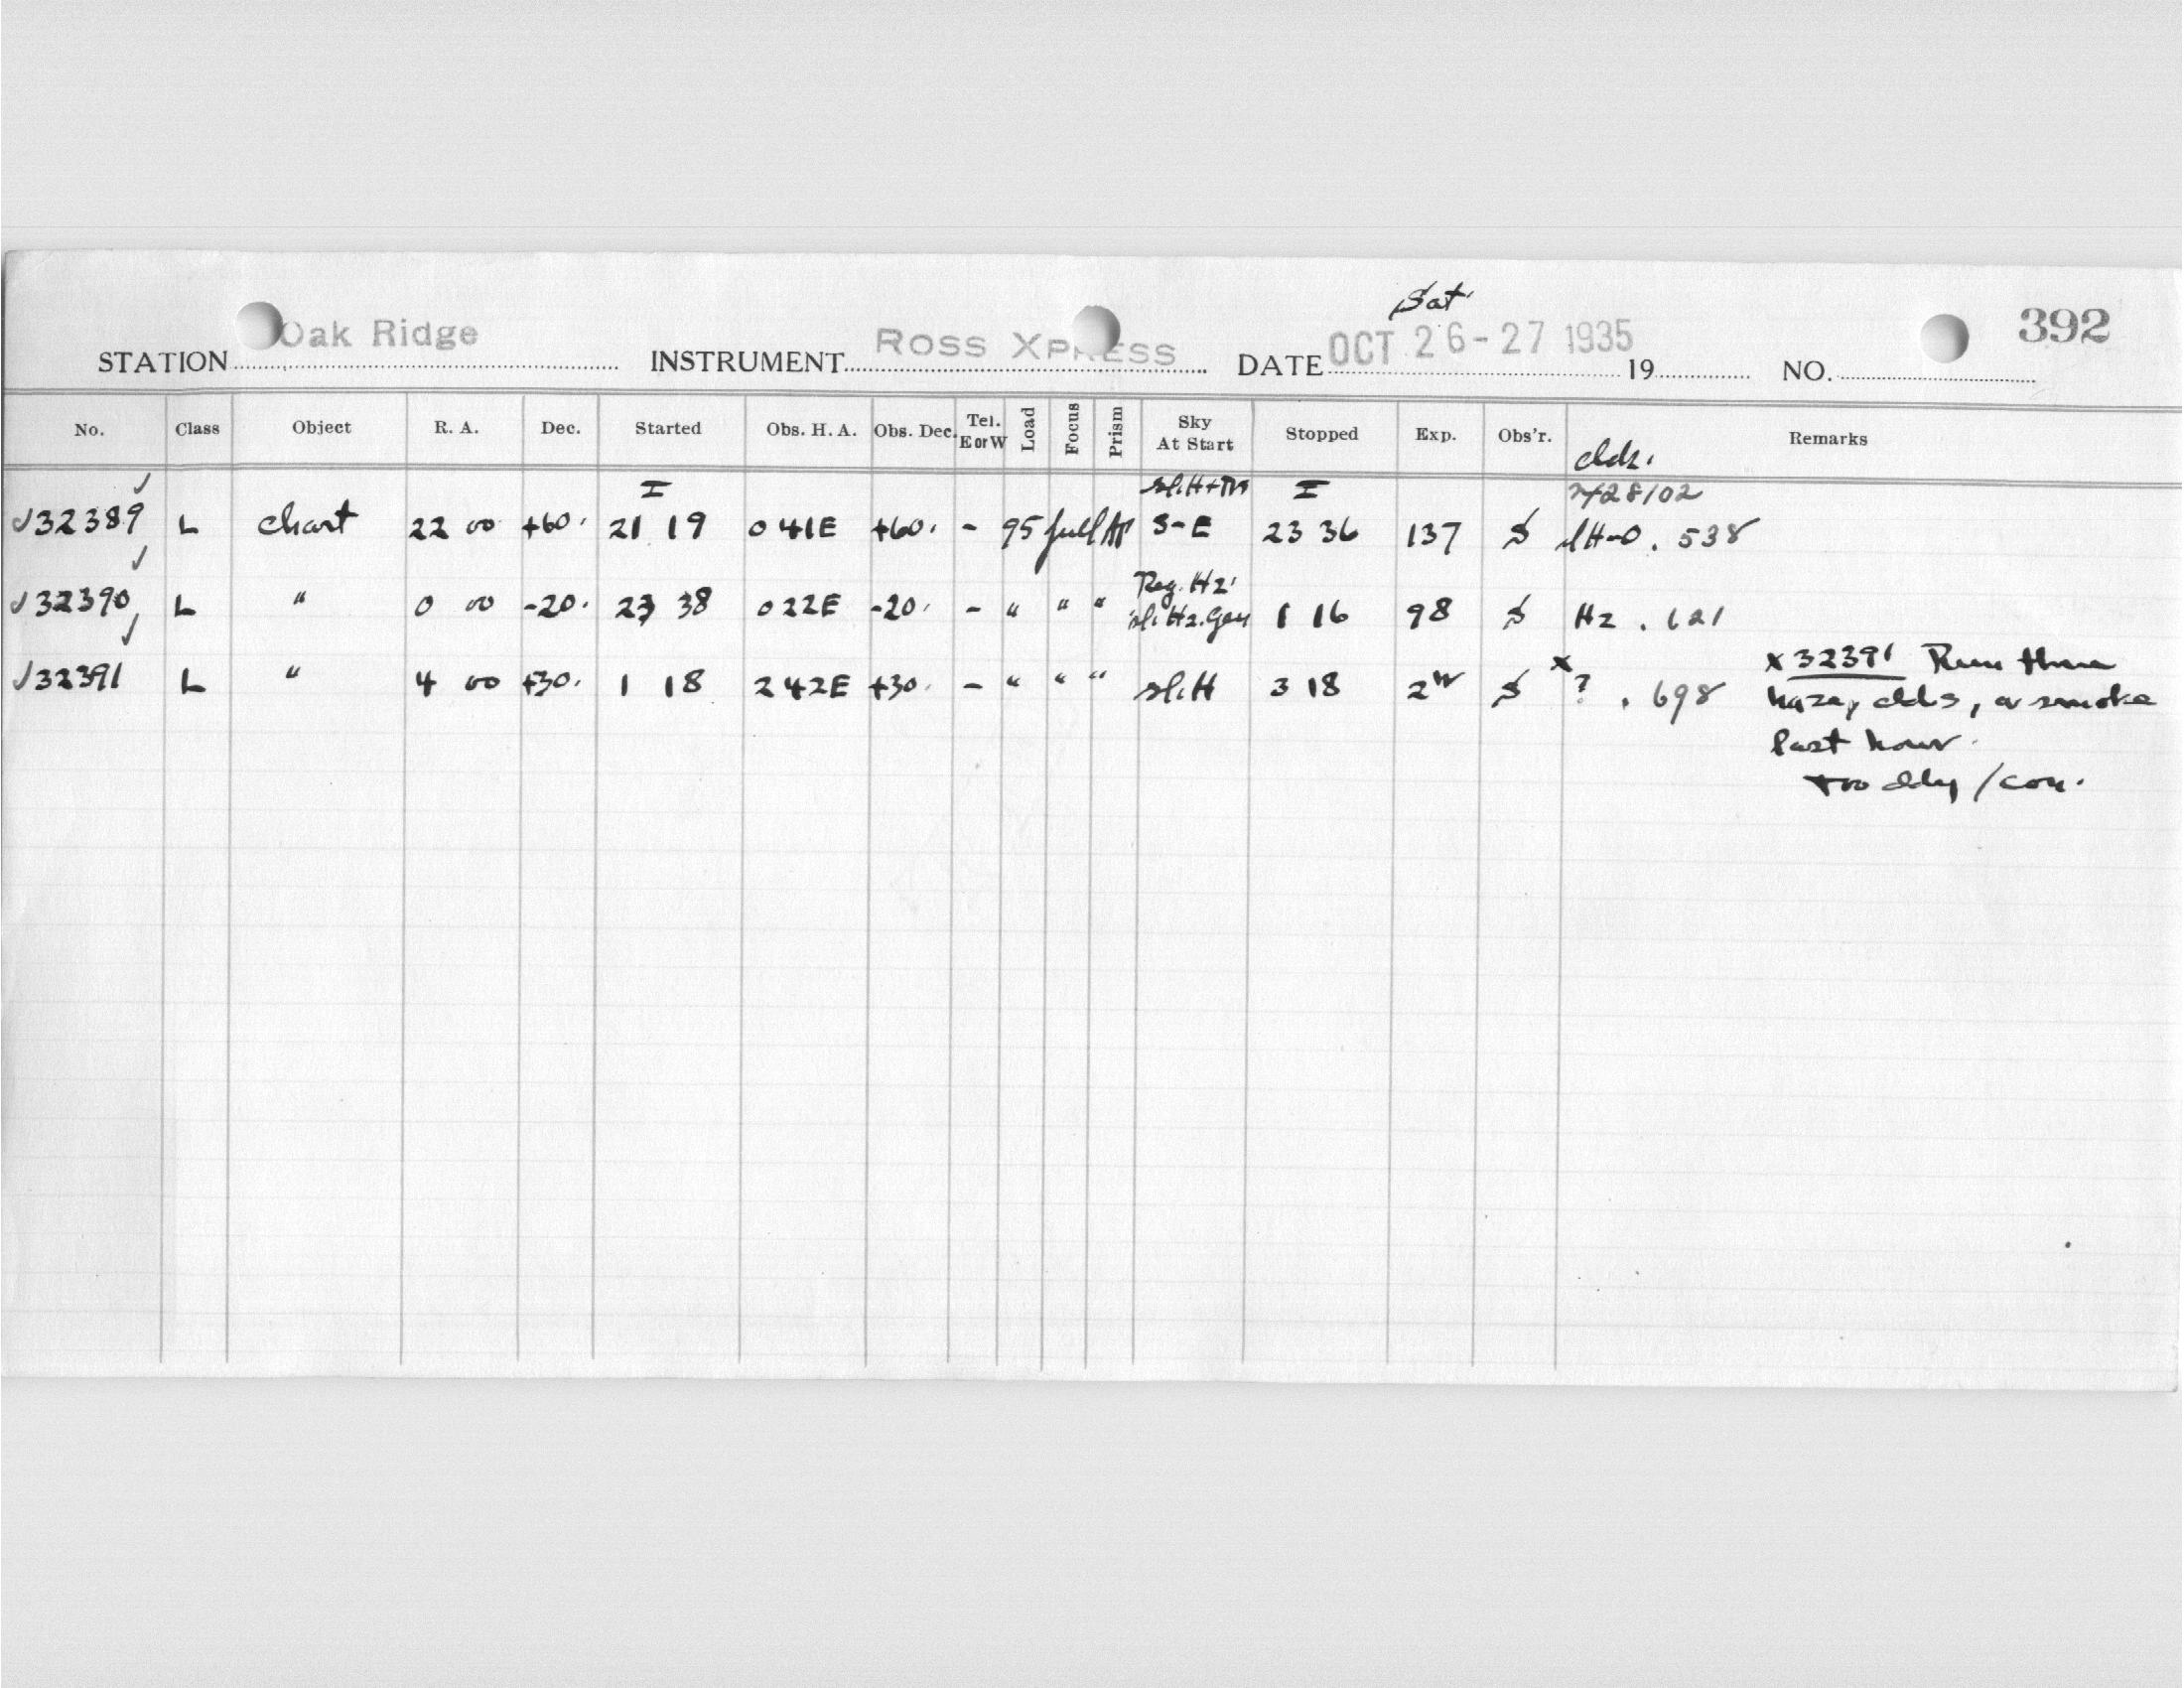 Sat
STATION Oak Ridge INSTRUMENT ROSS XPRESS DATE OCT 26-27 1935 19 NO. 392
No. Class Object R. A. Dec. Started Obs. H. A. Obs. Dec. Tel. E or W Load Focus Prism Sky At Start Stopped Exp. Obs'r. Remarks
I I
✓32389 L chart 22 00 +60. 21 19 0 41E +60. - 95 full S-E 23 36 137 S . 538
Reg. Hz.
✓32390 L " 0 00 -20. 23 38 0 22E -20. - " " " sli Hz. Gen 1 16 98 S Hz . 621
✓32391 L " 4 00 +30. 1 18 2 42E +30. - " " " sli H 3 18 2 S x ? . 698
x 32391 Run thru
haze, clds, or smoke
last hour.
too cldy / con.